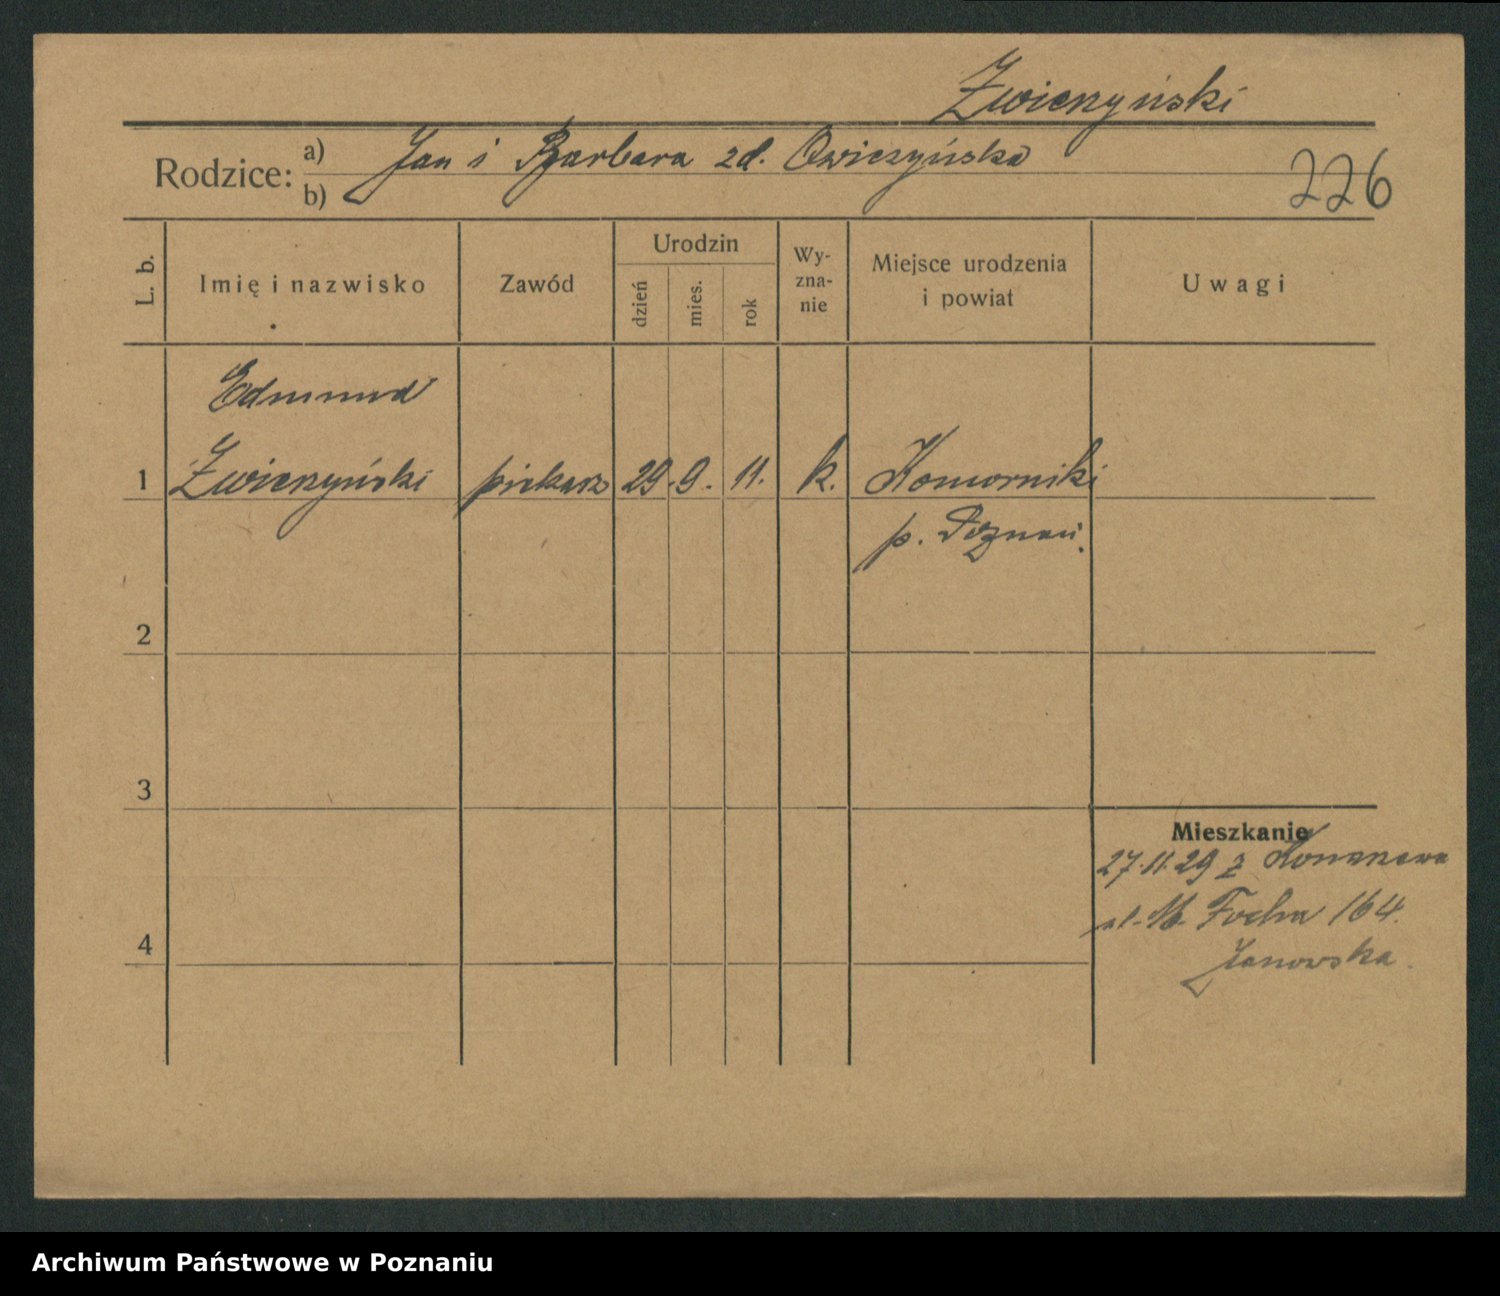 Zwierzyński
Rodzice: a) Jan i Barbara zd. Owierzyńska
b)
226
L. b.
Imię i nazwisko
Zawód
Urodzin
dzień
mies.
rok
Wy-
zna-
nie
Miejsce urodzenia
i powiat
Uwagi
Edmund
1 Zwierzyński piekarz 29. 9. 11. k. Komorniki
p. Poznań.
2
3
Mieszkanie
27.11.29 z
ul. M. Focha 164.
Janowska
4
Archiwum Państwowe w Poznaniu